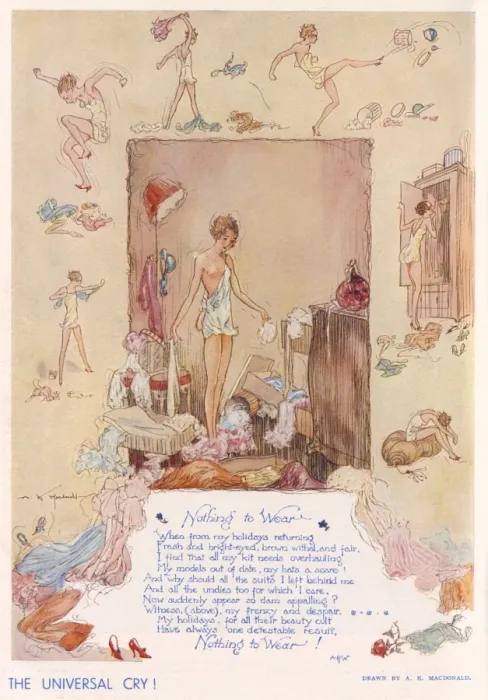 A. K. Macdonald
Nothing to Wear
When from my holidays returning
Fresh and bright-eyed, brown withal, and fair,
I find that all my kit needs overhauling
My models out of date, my hats a scare!
And why should all the suits I left behind me
And all the undies too for which I care,
Now suddenly appear so darn appalling?
Witness, (above), my frenzy and despair.
My holidays, for all their beauty cult
Have always one detestable result,
Nothing to Wear!
THE UNIVERSAL CRY!
DRAWN BY A. K. MACDONALD.